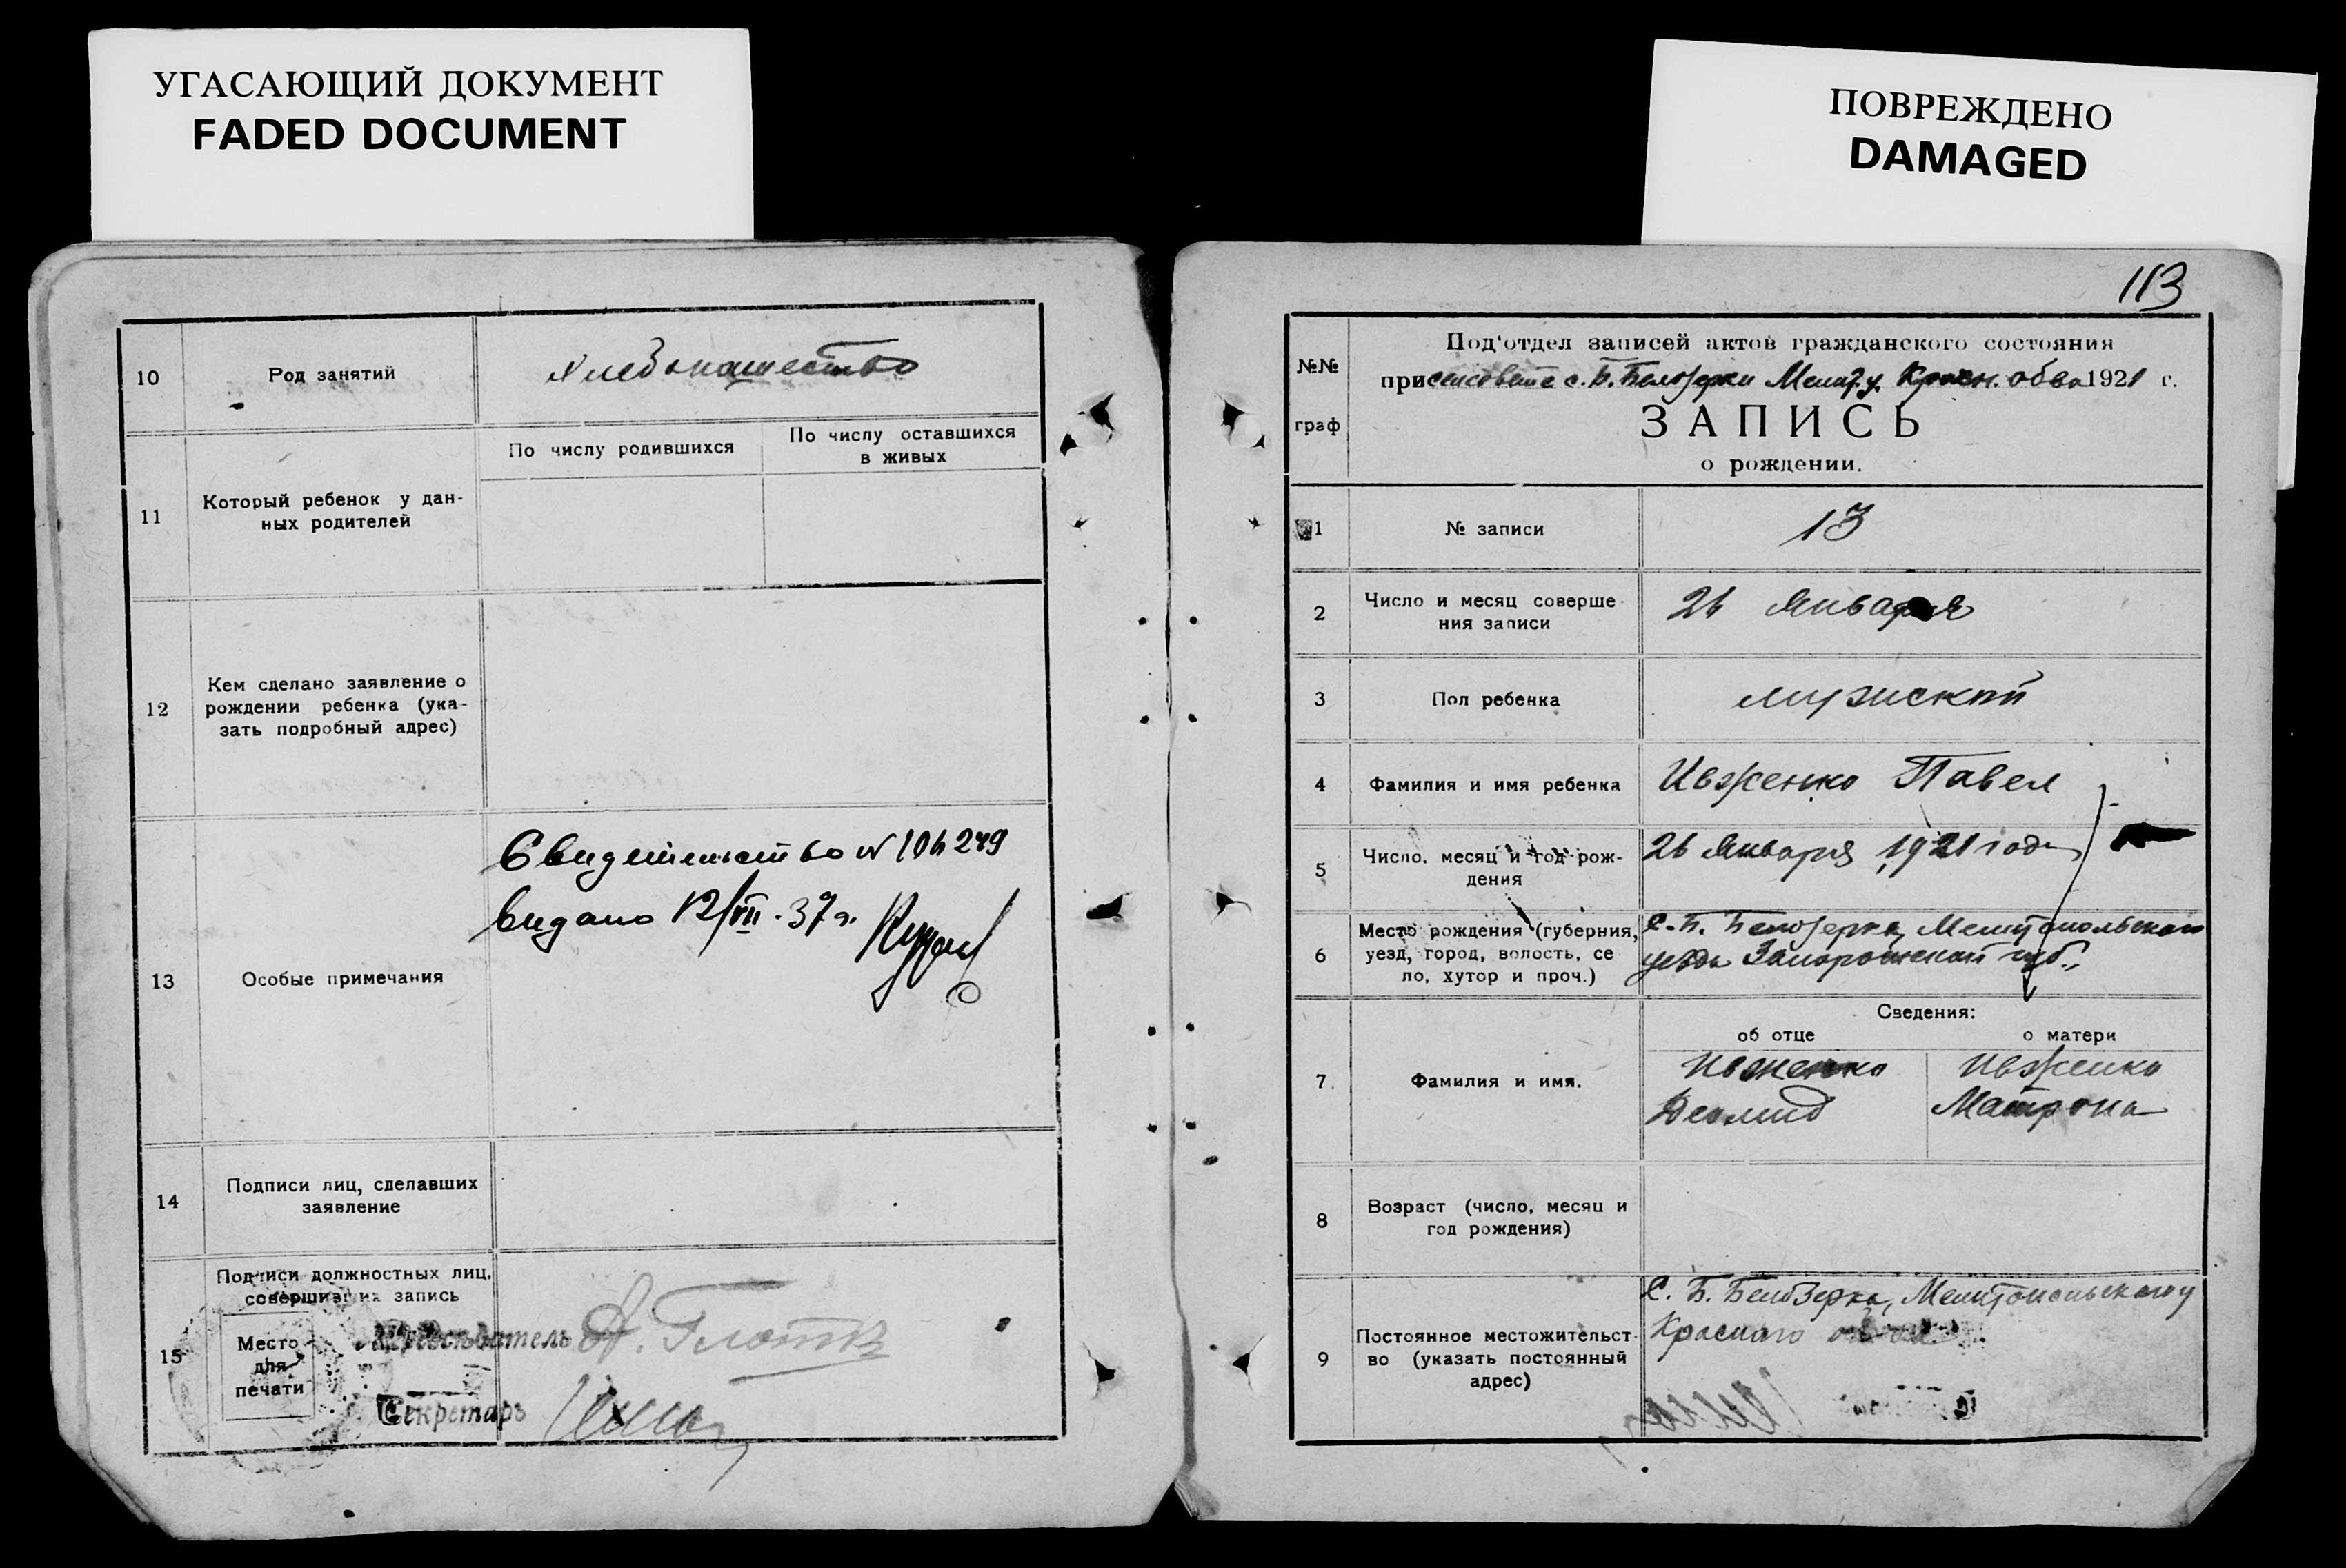 УГАСАЮЩИЙ ДОКУМЕНТ
FADED DOCUMENT
ПОВРЕЖДЕНО
DAMAGED
10
Род занятий
хлебопашество
11
Который ребенок у дан-
ных родителей
По числу родившихся
По числу оставшихся
в живых
12
Кем сделано заявление о
рождении ребенка (ука-
зать подробный адрес)
13
Особые примечания
Свидетельство №
видано 12/VII. 37 г.
14
Подписи лиц, сделавших
заявление
15
Подписи должностных лиц,
совершивших запись
Место
для
печати
Председатель
Секретарь
113
№№
граф
Под'отдел записей актов гражданского состояния
при с. Б. Белозерки Мелит. у. Красн. 1921 г.
ЗАПИСЬ
о рождении.
1
№ записи
13
2
Число и месяц соверше-
ния записи
26 Января
3
Пол ребенка
мужской
4
Фамилия и имя ребенка
Ивженко Павел
5
Число, месяц и год рож-
дения
26 Января 1921 года
6
Место рождения (губерния,
уезд, город, волость, се
ло, хутор и проч.)
С. Б. Белозерка, Мелитопольского
уезда Запорожской губ.,
Сведения:
об отце
о матери
7
Фамилия и имя.
Ивженко
Демид
Ивженко
Матрона
8
Возраст (число, месяц и
год рождения)
9
Постоянное местожительст-
во (указать постоянный
адрес)
С. Б. Белозерка, Мелитопольского у
Красного